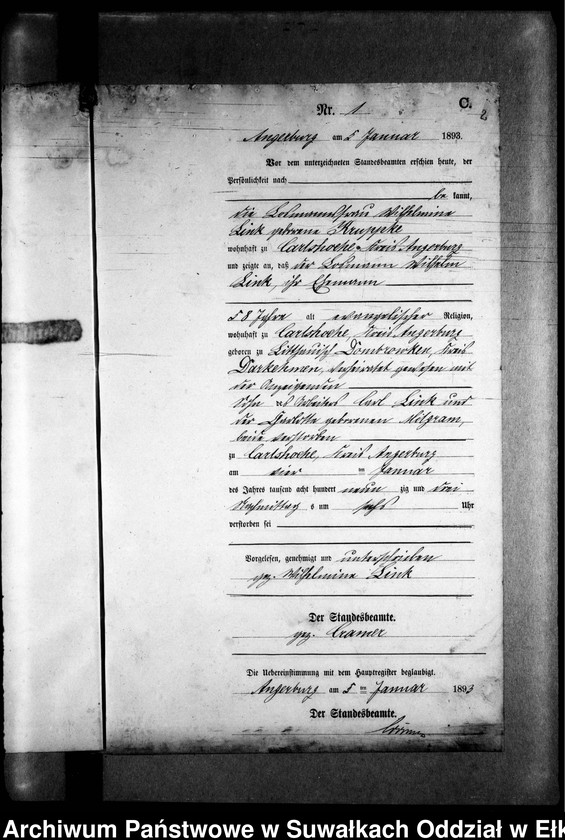 C.
Nr. 1
2
Angerburg am 5 Januar 1893.
Vor dem unterzeichneten Standesbeamten erschien heute, der
Persönlichkeit nach
be kannt,
die Losmannsfrau Wilhelmine
Link geborene Kruppke
wohnhaft zu Carlshoehe Kreis Angerburg
und zeigte an, daß der Losmann Wilhelm
Link, ihr Ehemann
58 Jahre alt evangelischer Religion,
wohnhaft zu Carlshoehe, Kreis Angerburg
geboren zu Litthauisch Dombrowken, Kreis
Darkehmen, verheiratet gewesen mit
der Anzeigenden
Sohn des Arbeiters Carl Link und
der Charlotte geborenen Milgram,
beide verstorben
zu Carlshoehe, Kreis Angerburg
am vier ten Januar
des Jahres tausend acht hundert neun zig und drei
Nachmittag s um sechs Uhr
verstorben sei
Vorgelesen, genehmigt und unterschrieben
gez. Wilhelmine Link
Der Standesbeamte.
gez. Cramer
Die Uebereinstimmung mit dem Hauptregister beglaubigt.
Angerburg am 5 ten Januar 1893
Der Standesbeamte.
Cramer
Archiwum Państwowe w Suwałkach Oddział w Ełk